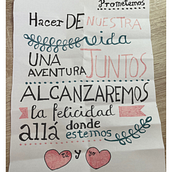 Prometemos
Hacer DE NUESTRA
vida
UNA
AVENTURA JUNTOS
ALCANZAREMOS
la felicidad
allá donde
estemos